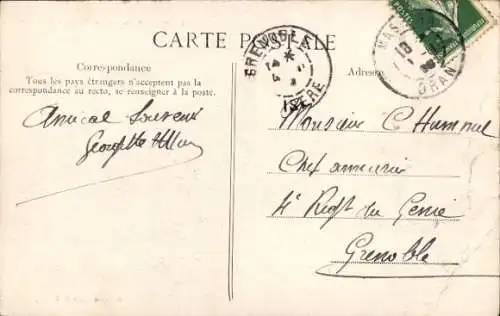 CARTE POSTALE
GRENOBLE
ISERE
MAS
ORAN
Correspondance
Tous les pays étrangers n'acceptent pas la
correspondance au recto, se renseigner à la poste.
Adresse
Amical Souvenir
Georgette
Monsieur C Hummel
Chef armurier
4e Regt du Génie
Grenoble